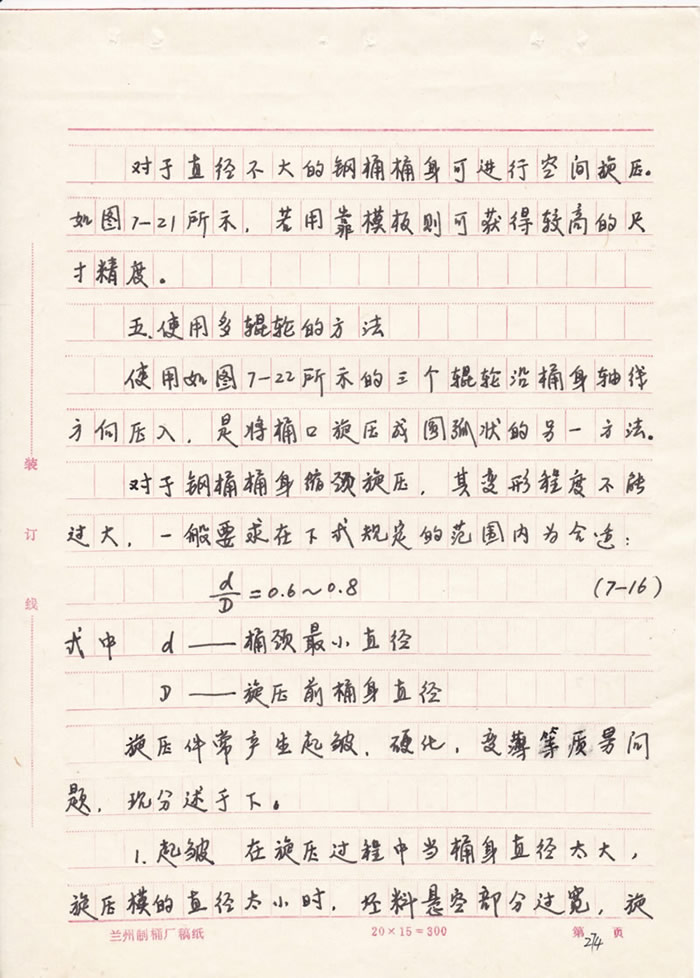 对于直径不大的钢桶桶身可进行空间旋压。
如图7-21所示，若用靠模板则可获得较高的尺
寸精度。
五.使用多辊轮的方法
使用如图7-22所示的三个辊轮沿桶身轴线
方向压入，是将桶口旋压成圆弧状的另一方法。
对于钢桶桶身缩颈旋压，其变形程度不能
过大，一般要求在下式规定的范围内为合适：
d/D=0.6～0.8 (7-16)
式中 d——桶颈最小直径
D——旋压前桶身直径
旋压件常产生起皱、硬化、变薄等质量问
题，现分述于下。
1.起皱 在旋压过程中当桶身直径太大，
旋压模的直径太小时，坯料悬空部分过宽，旋
装
订
线
兰州制桶厂稿纸 20×15=300 第274页